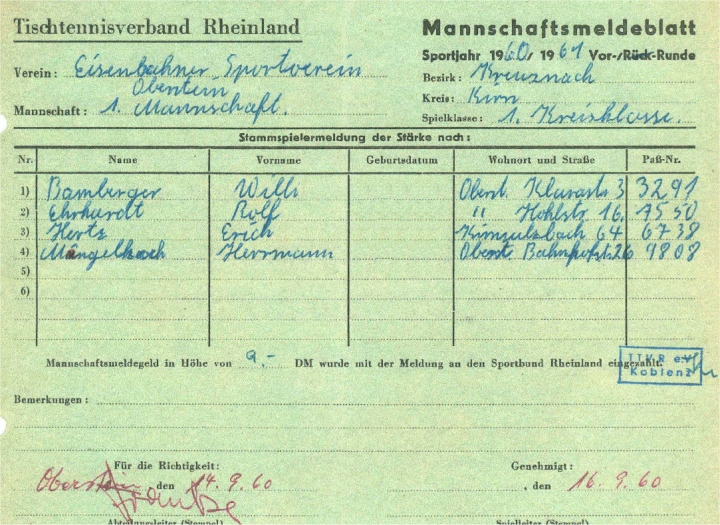 Tischtennisverband Rheinland
Mannschaftsmeldeblatt
Sportjahr 1960/1961 Vor-/Rück-Runde
Verein: Eisenbahner Sportverein
Oberstein
Bezirk: Kreuznach
Kreis: Kirn
Mannschaft: 1. Mannschaft.
Spielklasse: 1. Kreisklasse.
Stammspielermeldung der Stärke nach:
Nr. Name Vorname Geburtsdatum Wohnort und Straße Paß-Nr.
1) Bamberger Willi Oberst. 3 3291
2) Ehrhardt Rolf " Hohlstr. 16. 7550
3) Hertz Erich 64 6738
4) Mängelkoch Herrmann Oberst. Bahnhofstr. 26 9808
5)
6)
Mannschaftsmeldegeld in Höhe von 9.- DM wurde mit der Meldung an den Sportbund Rheinland eingezahlt.
TTVR e.V.
Koblenz
Bemerkungen:
Für die Richtigkeit: Genehmigt:
Oberstein, den 14.9.60 , den 16.9.60
Abteilungsleiter (Stempel) Spielleiter (Stempel)